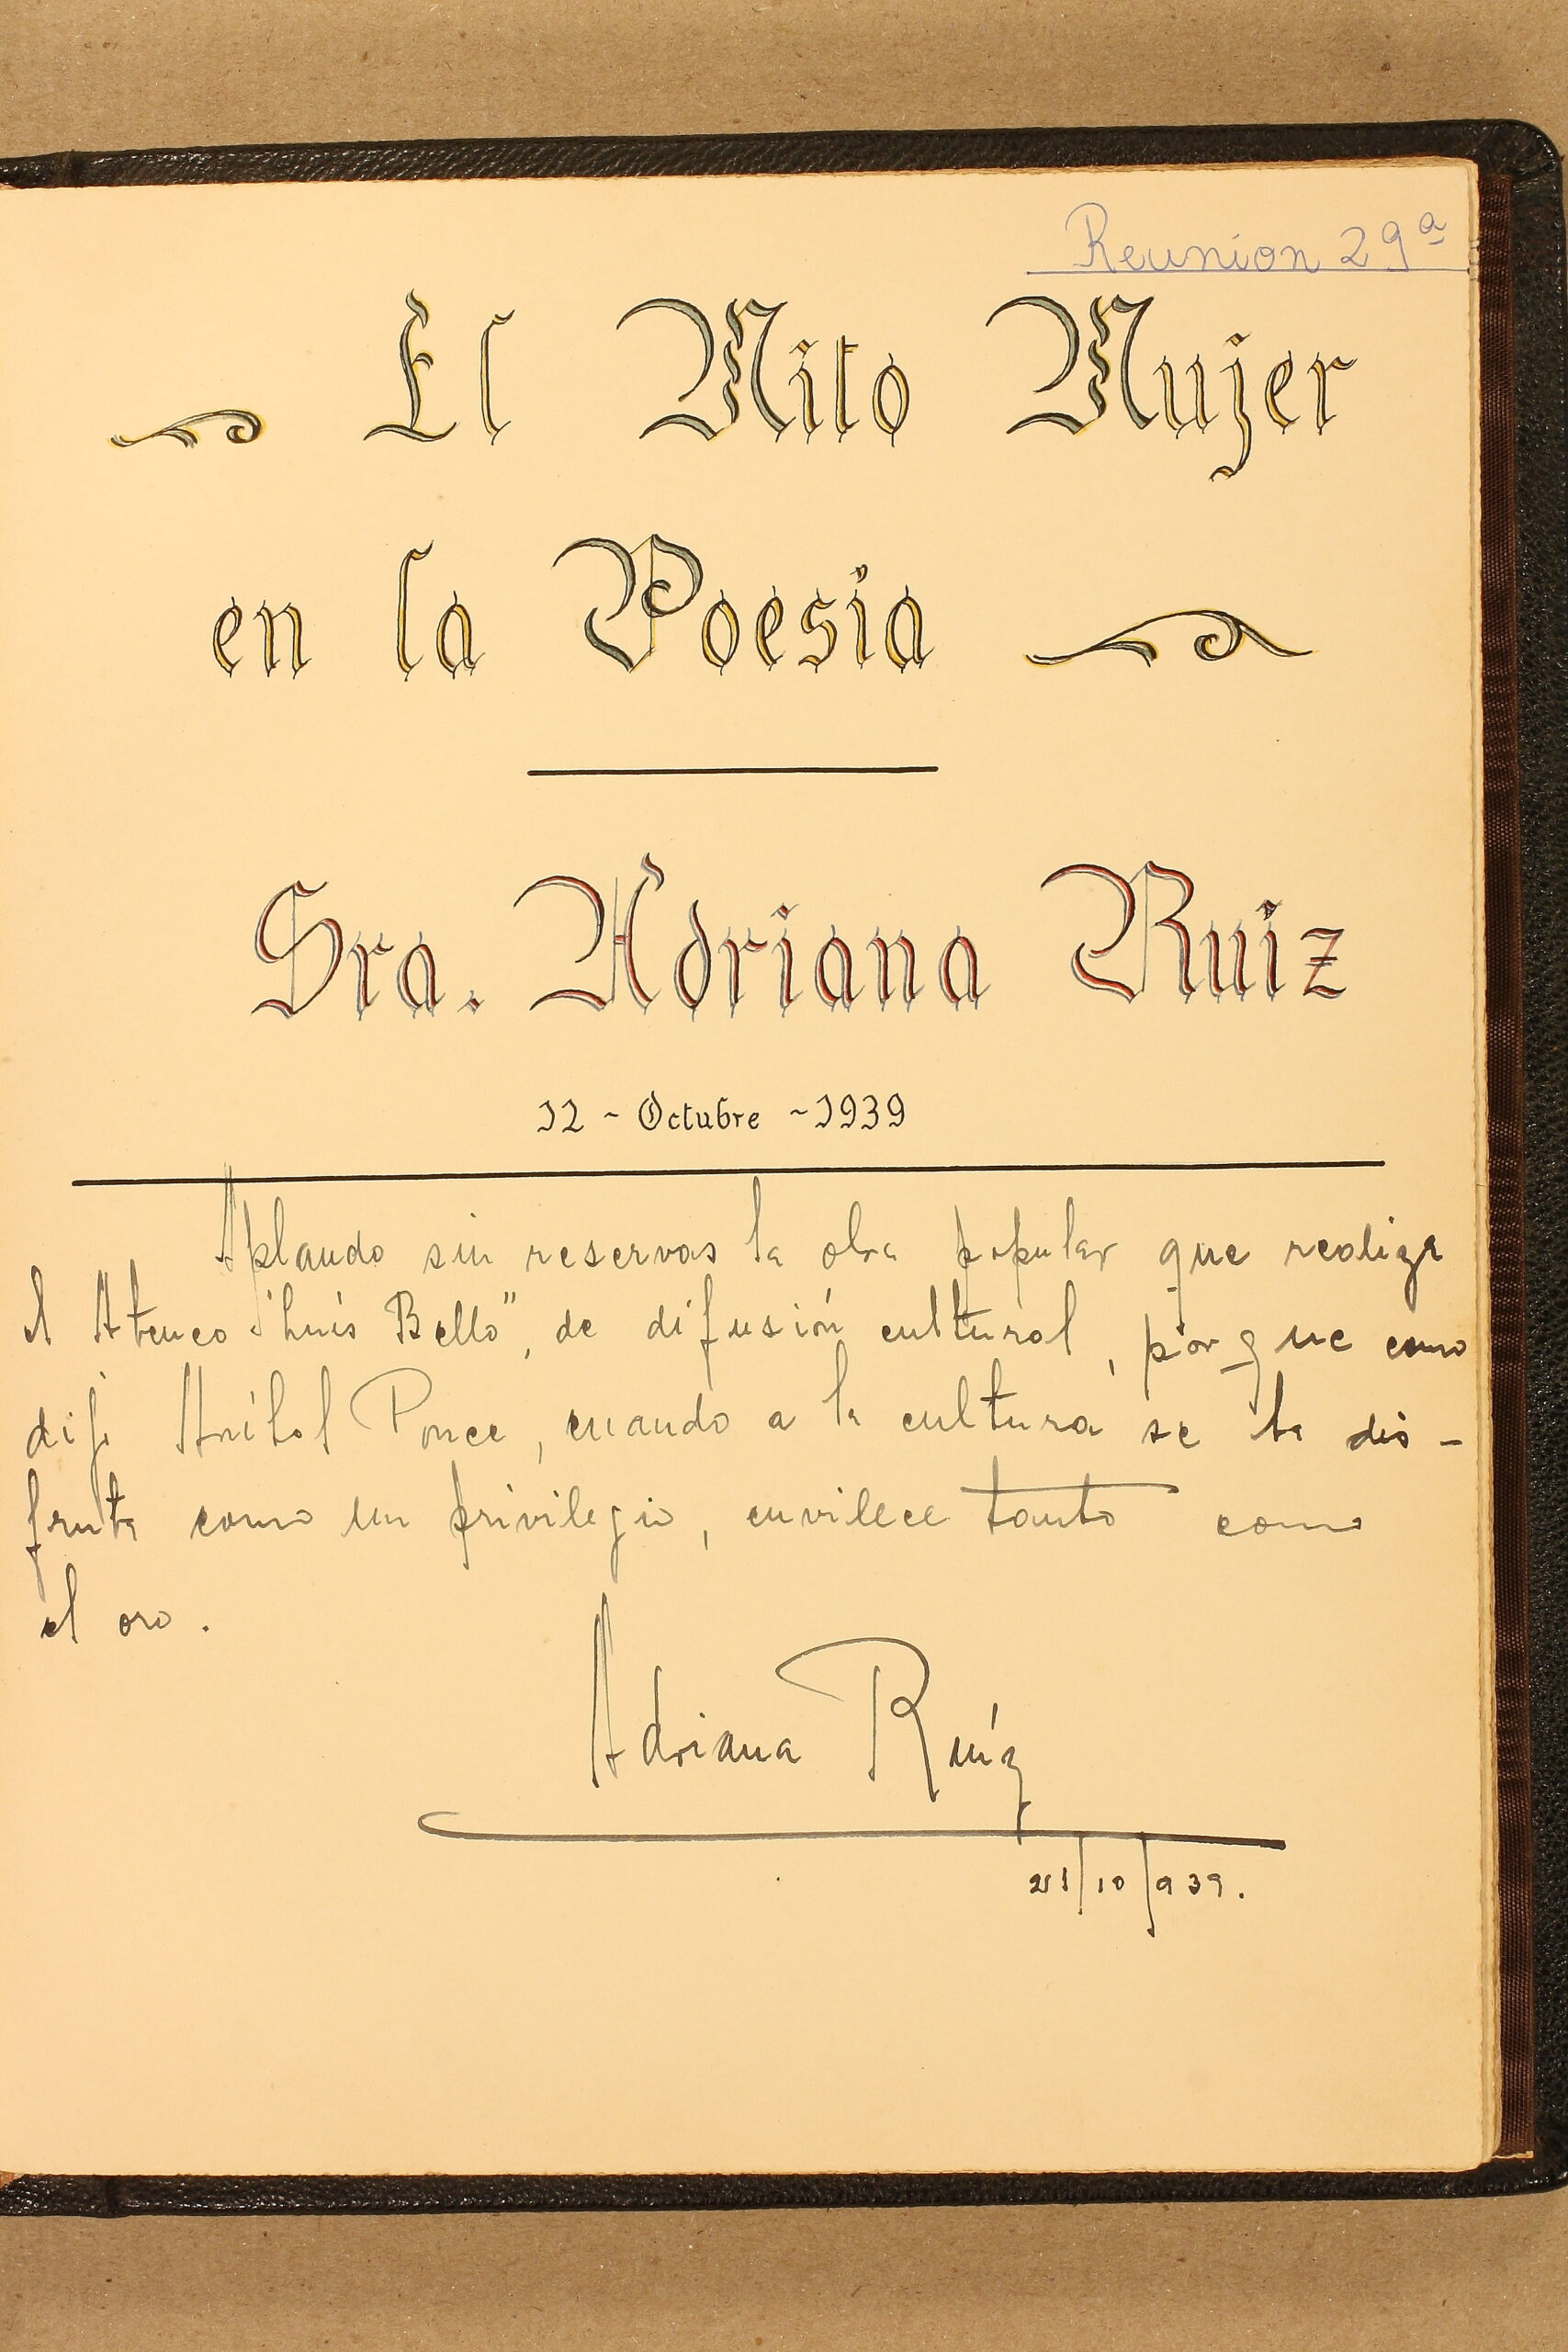 Reunion 29ª
El Mito Mujer
en la Poesía
Sra. Adriana Ruiz
12 - Octubre - 1939
Aplaudo sin reservas la obra popular que realiza
el Ateneo "Luis Bello", de difusión cultural, porque como
dijo Aníbal Ponce, cuando a la cultura se la dis-
fruta como un privilegio, envilece tanto como
el oro.
Adriana Ruíz
/10/939.